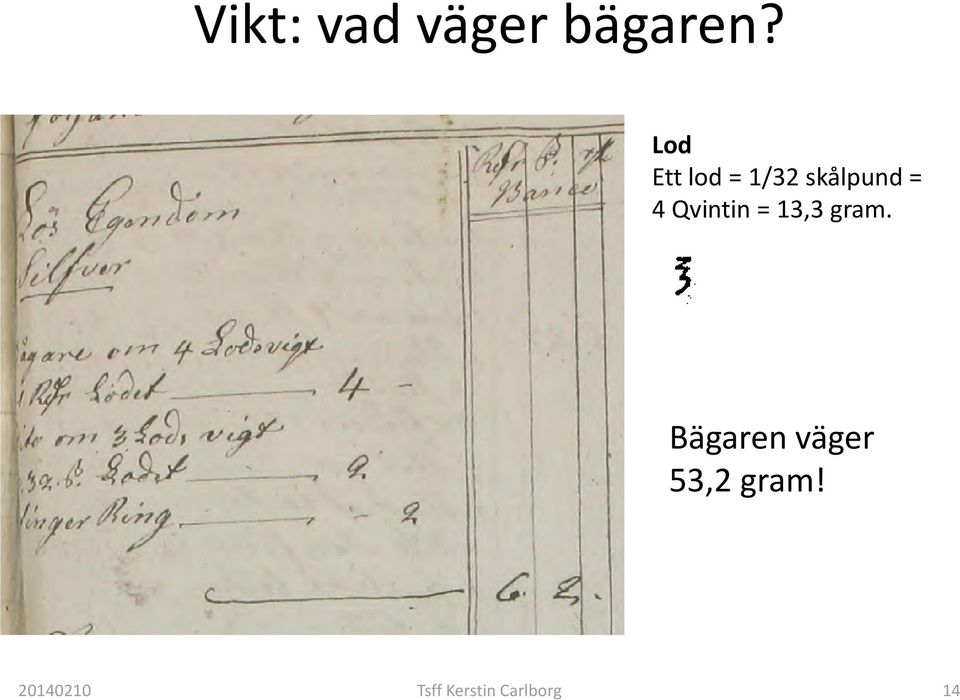 Vikt: vad väger bägaren?
Lod
Ett lod = 1/32 skålpund =
4 Qvintin = 13,3 gram.
Rdr
Banco
Lös Egendom
Silfver
ägare om 4 Lodsvigt
1 Rdr Lodet 4 -
ito om 3 Lods vigt
32 ß. Lodet 2.
inger Ring - 2
6. 2.
Bägaren väger
53,2 gram!
20140210 Tsff Kerstin Carlborg 14